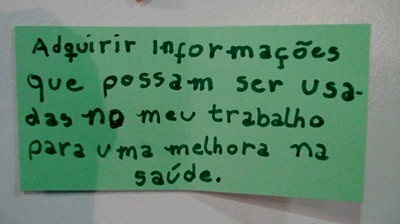 Adquirir informações
que possam ser usa-
das no meu trabalho
para uma melhora na
saúde.